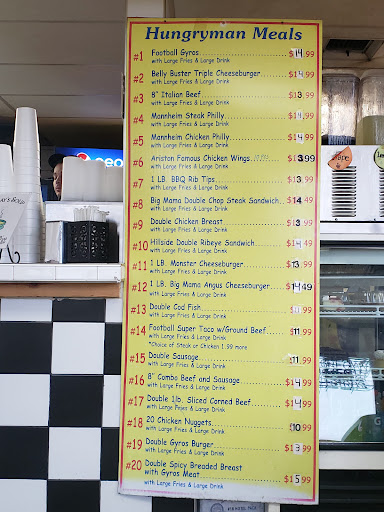 Hungryman Meals
#1 Football Gyros $14.99
with Large Fries & Large Drink
#2 Belly Buster Triple Cheeseburger $14.99
with Large Fries & Large Drink
#3 8" Italian Beef $13.99
with Large Fries & Large Drink
#4 Mannheim Steak Philly $14.99
with Large Fries & Large Drink
#5 Mannheim Chicken Philly $14.99
with Large Fries & Large Drink
#6 Ariston Famous Chicken Wings $13.99
with Large Fries & Large Drink
#7 1 LB. BBQ Rib Tips $13.99
with Large Fries & Large Drink
#8 Big Mama Double Chop Steak Sandwich $14.49
with Large Fries & Large Drink
#9 Double Chicken Breast $13.99
with Large Fries & Large Drink
#10 Hillside Double Ribeye Sandwich $14.49
with Large Fries & Large Drink
#11 1 LB. Monster Cheeseburger $13.99
with Large Fries & Large Drink
#12 1 LB. Big Mama Angus Cheeseburger $14.49
with Large Fries & Large Drink
#13 Double Cod Fish $11.99
with Large Fries & Large Drink
#14 Football Super Taco w/Ground Beef $11.99
with Large Fries & Large Drink
*Choice of Steak or Chicken 1.99 more
#15 Double Sausage $11.99
with Large Fries & Large Drink
#16 8" Combo Beef and Sausage $14.99
with Large Fries & Large Drink
#17 Double 1lb. Sliced Corned Beef $14.99
with Large Fries & Large Drink
#18 20 Chicken Nuggets $10.99
with Large Fries & Large Drink
#19 Double Gyros Burger $13.99
with Large Fries & Large Drink
#20 Double Spicy Breaded Breast
with Gyros Meat $15.99
with Large Fries & Large Drink